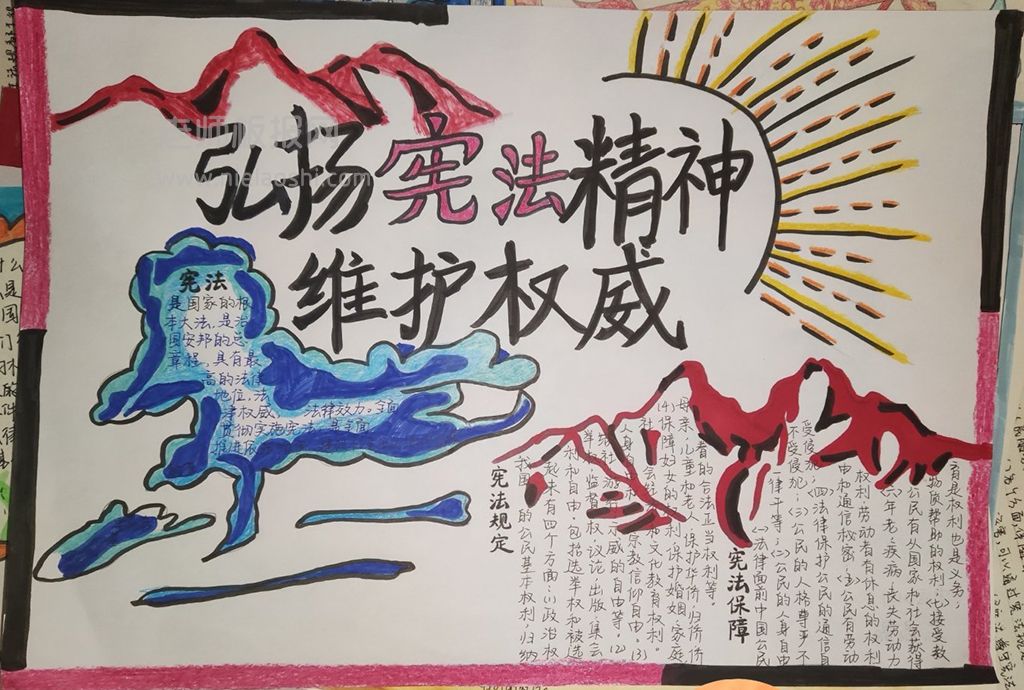 弘扬宪法精神
维护权威
宪法
是国家的根
本大法,是治
国安邦的总
章程,具有最
高的法律
地位,法
律权威、法律效力。全面
贯彻实施宪法,是全面
宪法规定
我国的公民基本权利,归纳
起来有四个方面:(1)政治权
利和自由,包括选举权和被选
举权和监督权、议论、出版、集会
结社、游行示威的自由等。(2)
人身自由和宗教信仰自由。(3)
社会经济和文化教育权利。
(4)保障妇女的权利,保护婚姻、家庭
母亲、儿童和老人,保护华侨、归侨侨
眷的合法正当权利等。
宪法保障
(一)法律面前中国公民
一律平等;(二)公民的人身自由
不受侵犯;(三)公民的人格尊严不
受侵犯;(四)法律保护公民的通信自
由和通信秘密;(五)公民有劳动
权利,劳动者有休息的权利
(六)年老、疾病、丧失劳动力
公民有从国家和社会获得
物质帮助的权利;(七)接受教
育是权利也是义务;
老师板报网